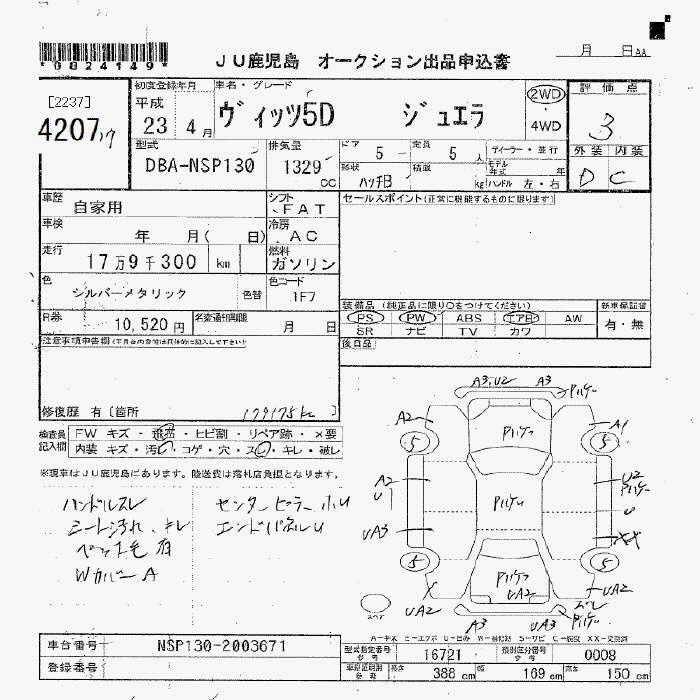 *0824149*
JU鹿児島 オークション出品申込書
月 日
[2237]
4207
初度登録年月
平成
23 4月
車名・グレード
ヴィッツ5D ジュエラ
2WD
4WD
評価点
3
外装 内装
D C
型式
DBA-NSP130
排気量
1329 CC
ドア 5
定員 5 人
ディーラー・並行
形状 ハッチB
積載 kg
モデル年式 年
ハンドル 左・右
車歴
自家用
シフト
FAT
車検
年 月( 日)
冷房
AC
走行
17万9千300 km
燃料
ガソリン
色
シルバーメタリック
色替
色コード
1F7
R券
10,520 円
名変通知期限
月 日
セールスポイント(正常に機能するものに限ります)
装備品 (純正品に限り○をつけてください)
PS PW ABS エアB AW
SR ナビ TV カワ
新車保証書
有・無
後日品
注意事項申告欄
修復歴 有 [箇所
179175km
]
検査員記入欄
FW キズ・飛石・ヒビ割・リペア跡・×要
内装 キズ・汚レ・コゲ・穴・スレ・キレ・破レ
※現車はJU鹿児島にあります。陸送費は落札店負担となります。
ハンドルスレ
シート汚れ、キレ
ペット毛有
WカバーA
センターピラー小U
エンドパネルU
A3.U2 A3
A2
A1
5 5
A2
U
UA3
U2
U
XX
5 5
X
UA2
UA2
A3 UA3
スペア
A-キズ E-エクボ U-凹み W-補修跡 S-サビ C-腐食 XX-交換済
車台番号
NSP130-2003671
登録番号
型式指定番号
16721
類別区分番号
0008
長さ 388 cm
幅 169 cm
高さ 150 cm